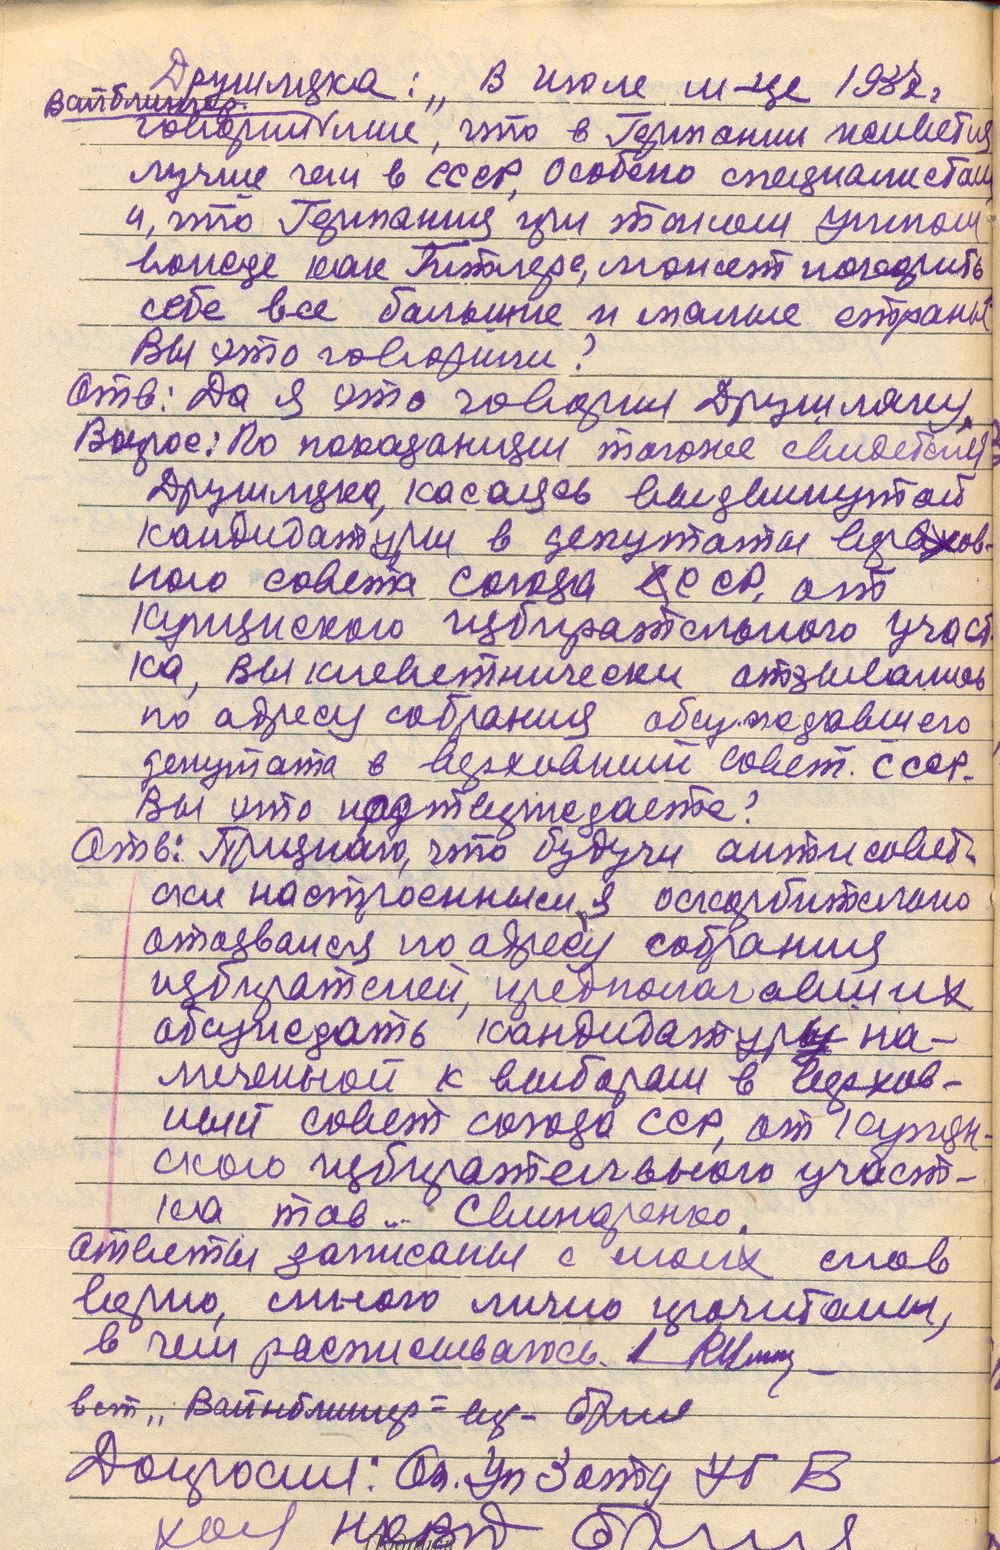 Друшляка: „В июле м-це 1937г.
Вайнблингер
говорил мне, что в Германии живется
лучше чем в СССР, особено специалистам
и, что Германия при таком умном
вожде как Гитлере, может покорить
себе все большие и малые страны"
Вы это говорили?
Отв: Да я это говорил Друшляку.
Вопрос: По показаниям тогоже свидетеля
Друшляка, касаясь выдвинутой
кандидатуры в депутаты верхов-
ного совета союза ССР, от
Купцнского избирательного участ-
ка, вы клеветнически отзывались
по адресу собрания обсуждавшего
депутата в верховный совет СССР.
Вы это подтверждаете?
Отв: Признаю, что будучи антисовет-
ски настроенным, я оскорбительно
отозвался по адресу собрания
избирателей, предполагавших
обсуждать кандидатуру на-
меченной к выборам в верхов-
ный совет союза ССР, от
ского избирательного участ-
ка тов. Свинаренко.
Ответы записаны с моих слов
верно, мною лично прочитаны,
в чем расписываюсь.
вст „Вайнблингер"
Допросил: Оп. Уп 3 отд УГБ
НКВД